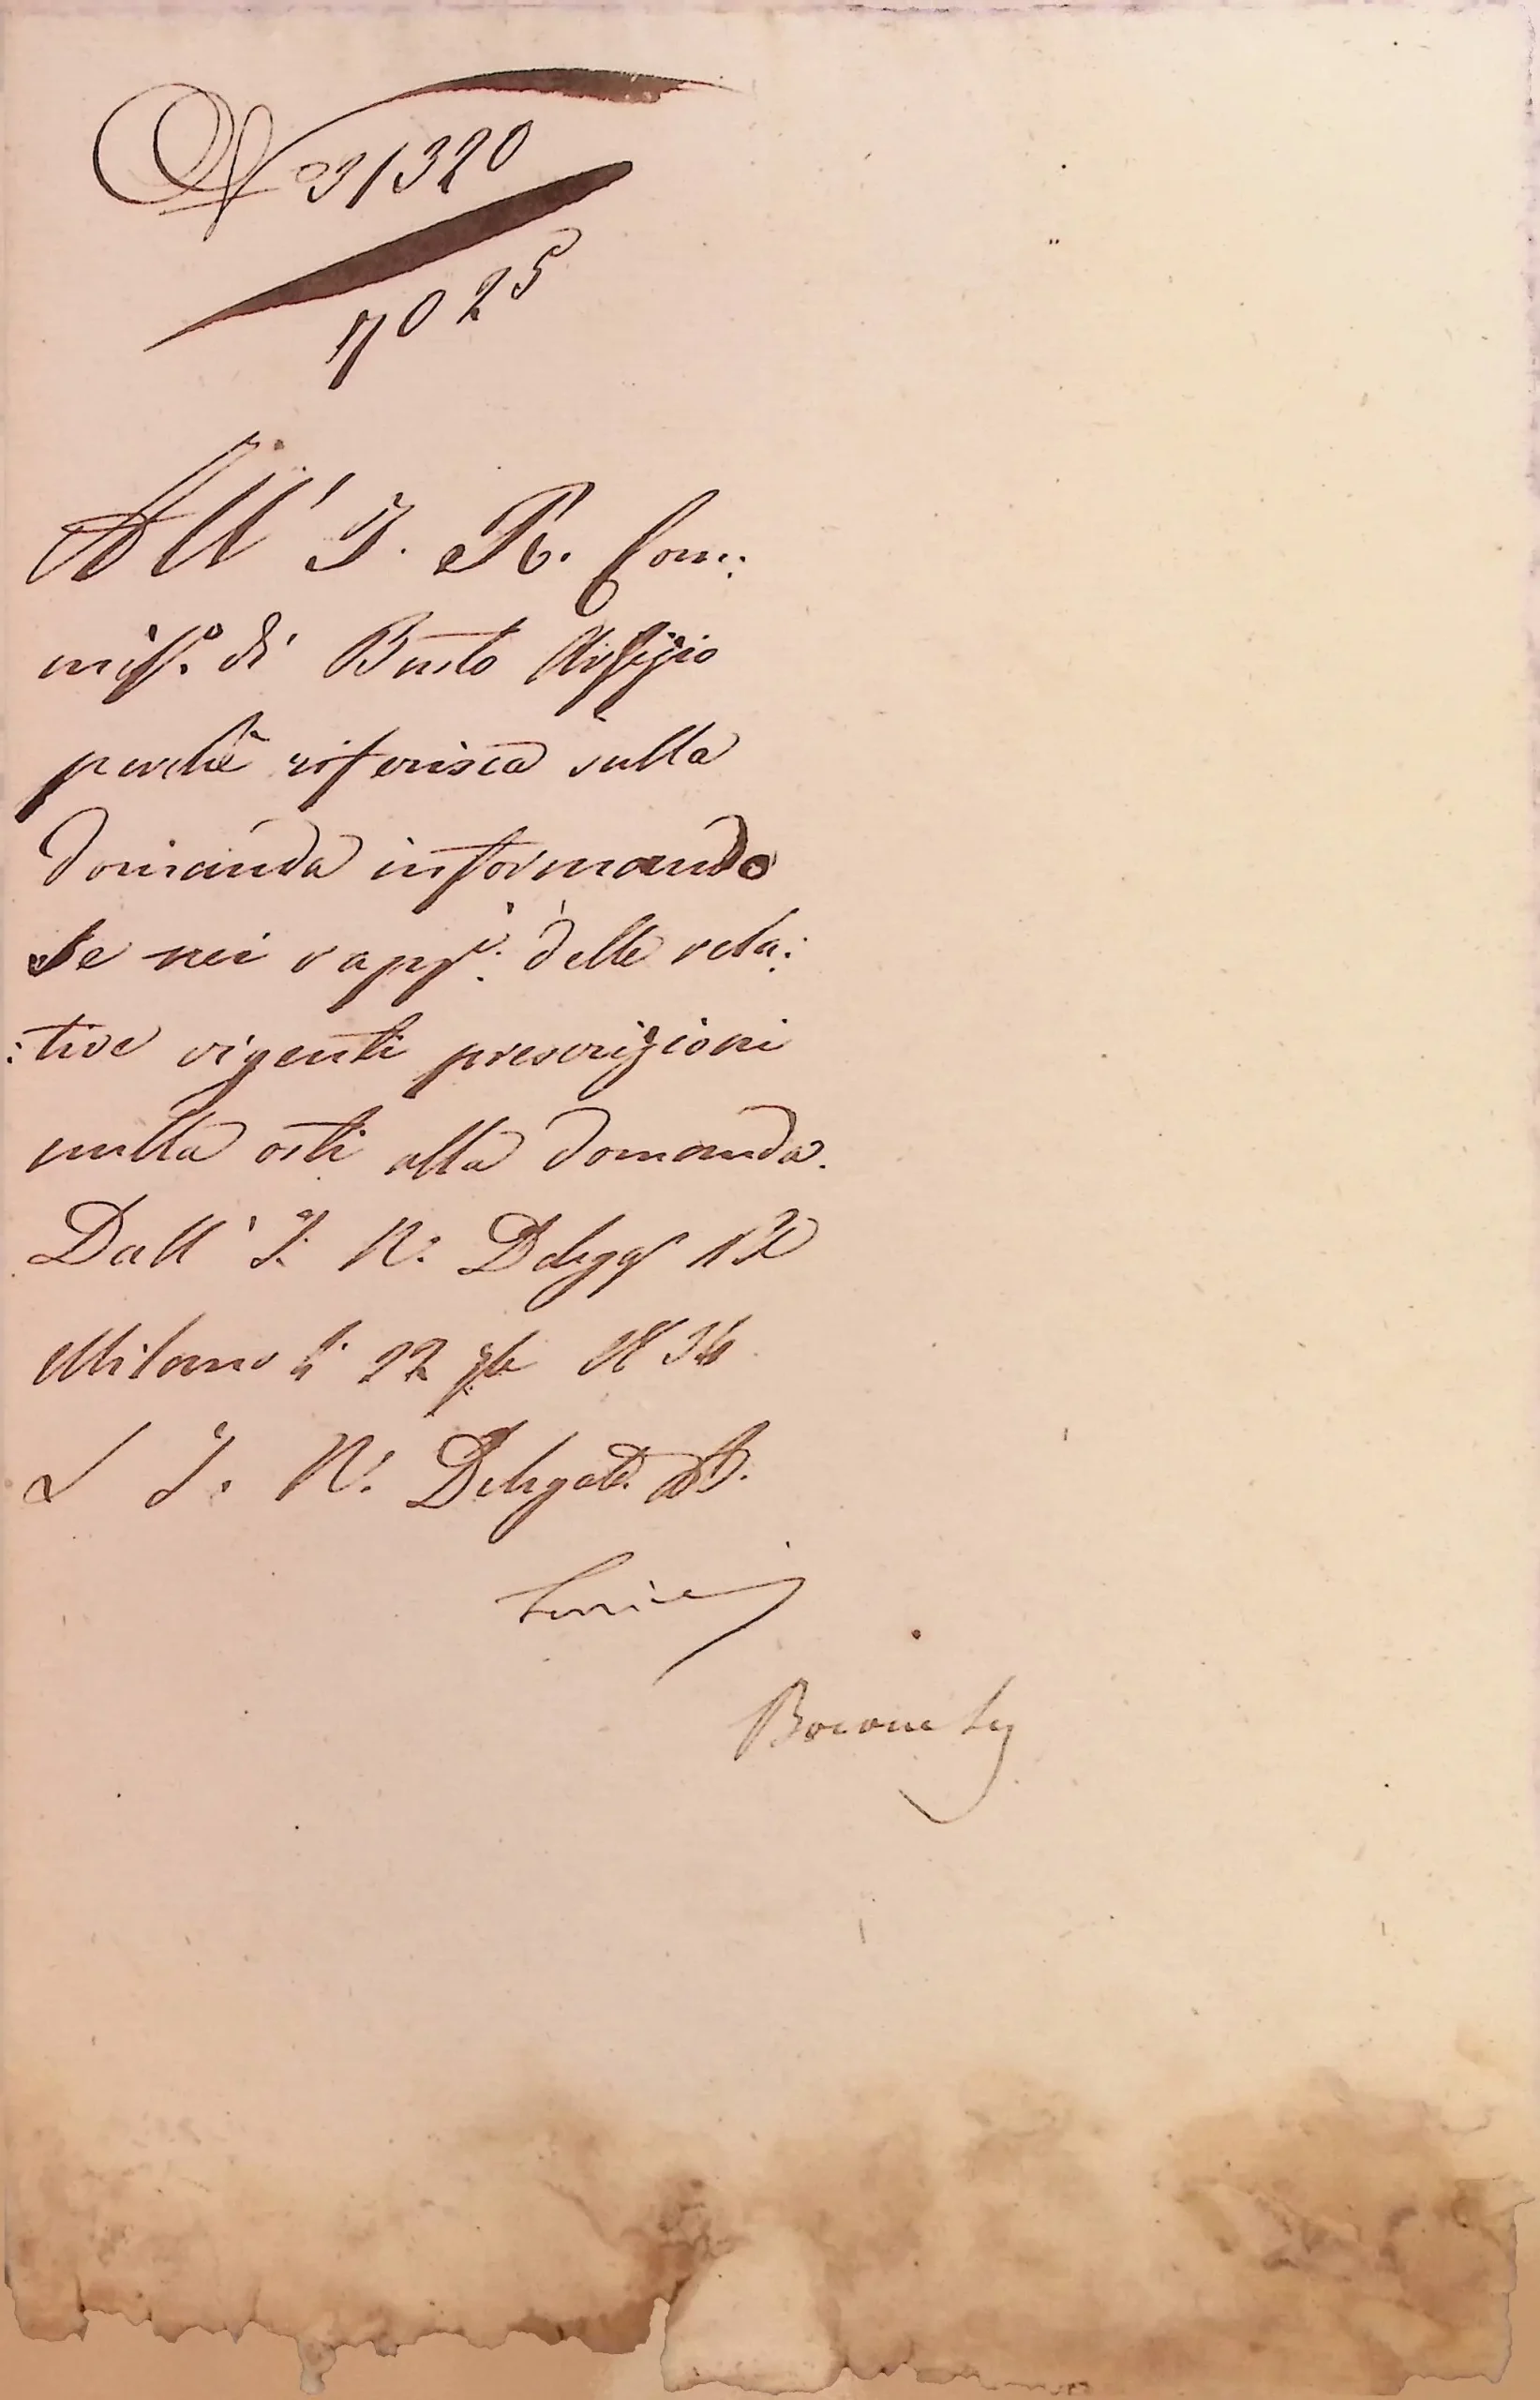 N 31320
7025
All' I. R. Com:
miss.º di Busto Arsizio
perchè riferisca sulla
domanda informando
se nei rapp.i delle rela:
:tive vigenti prescrizioni
nulla osti alla domanda.
Dall' I. R. Delegaz
Milano li 22 1834
L I. R. Delegato